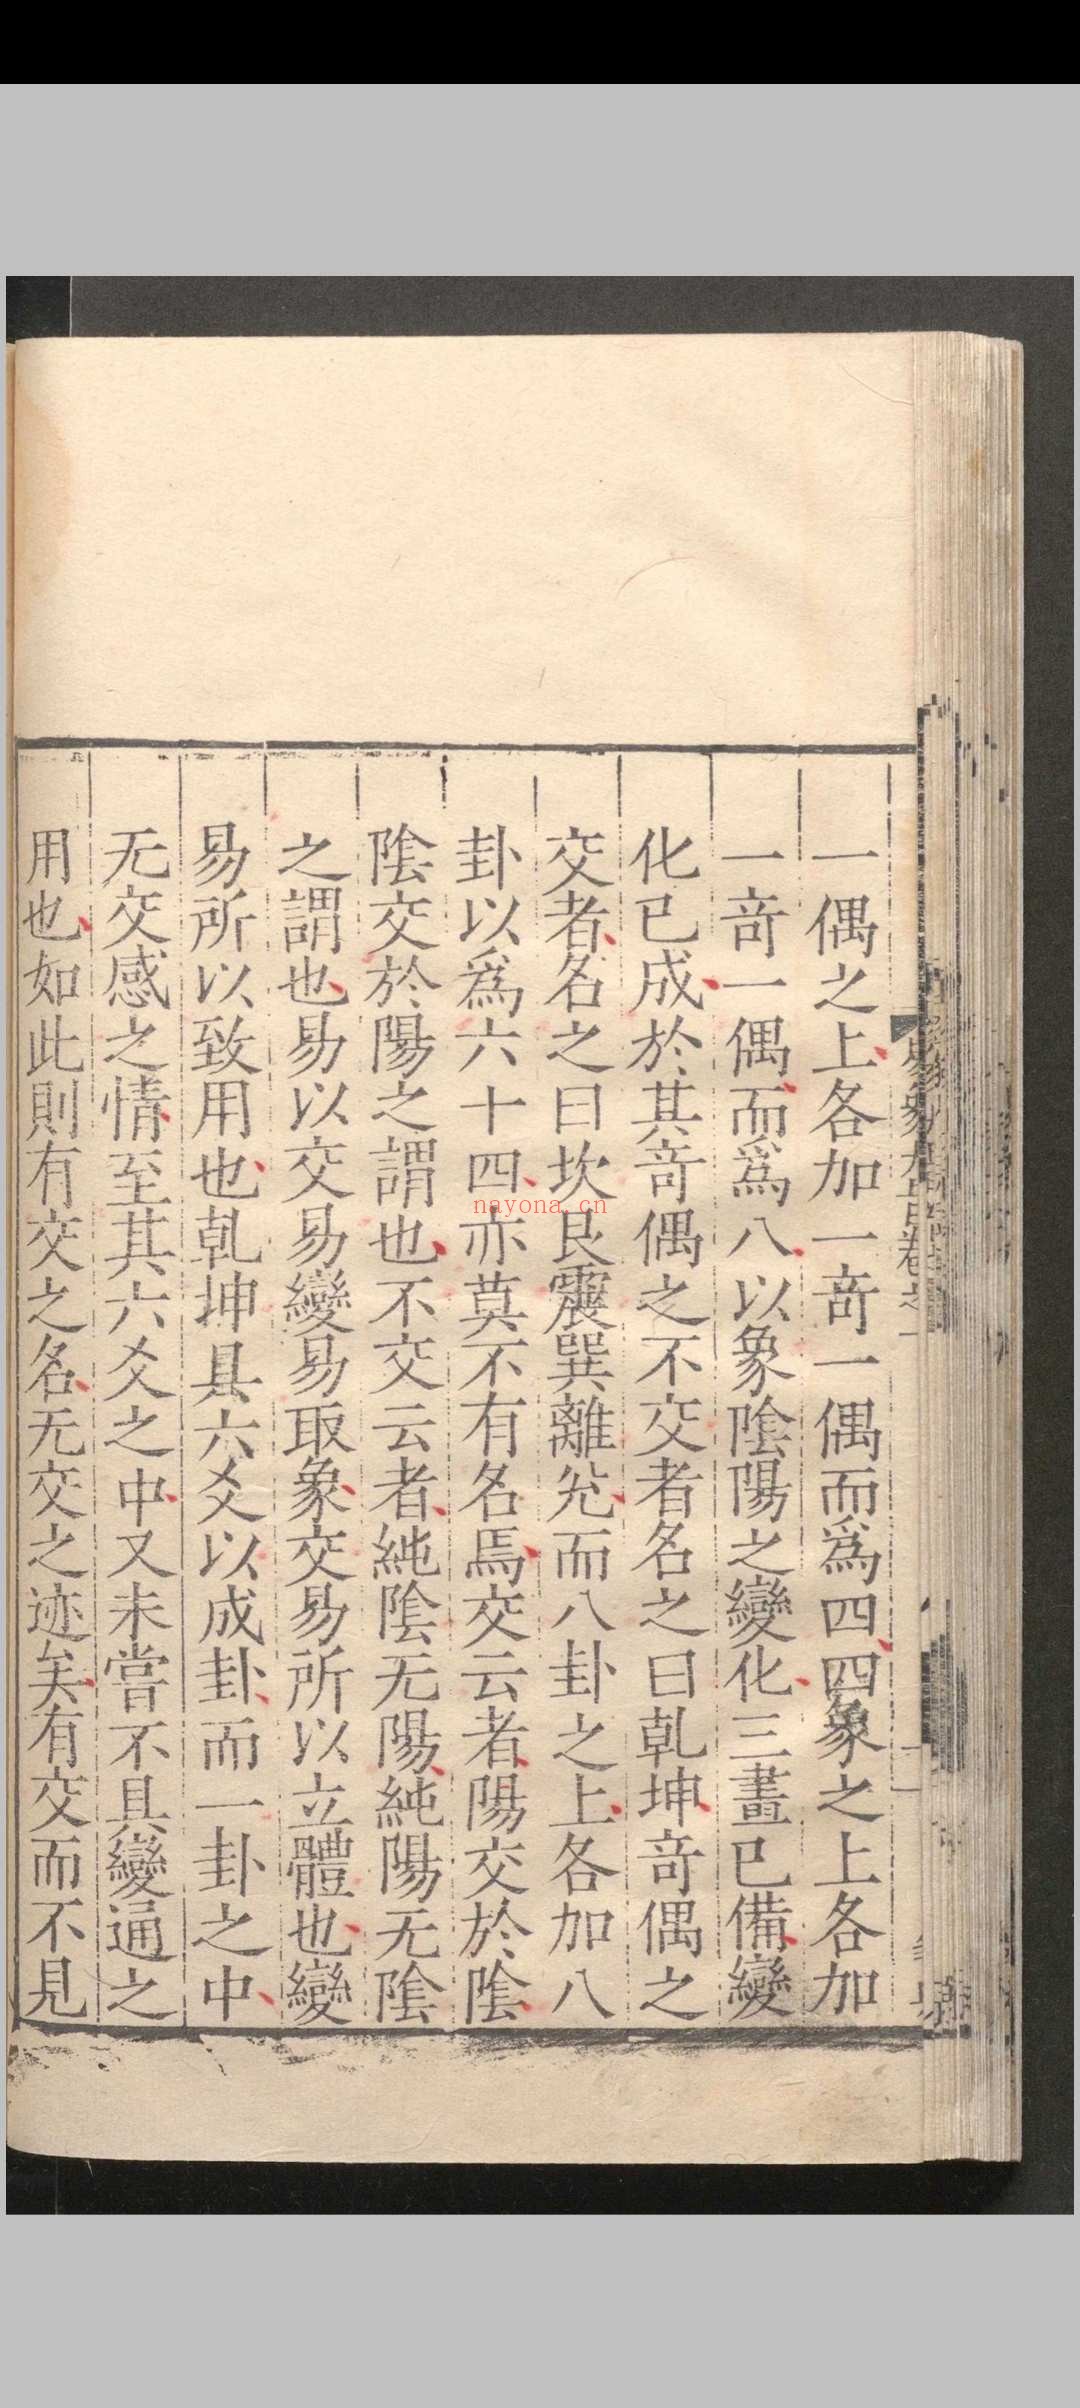 一偶之上各加一竒一偶而爲四四象之上各加
一竒一偶而爲八以象陰陽之變化三畫已備變
化已成於其竒偶之不交者名之曰乹坤竒偶之
交者名之曰坎艮震巽離兊而八卦之上各加八
卦以爲六十四亦莫不有名焉交云者陽交於陰
陰交於陽之謂也不交云者純陰无陽純陽无陰
之謂也易以交易變易取象交易所以立體也變
易所以致用也乹坤具六爻以成卦而一卦之中
无交感之情至其六爻之中又未嘗不具變通之
用也如此則有交之名无交之迹矣有交而不見
nayona.cn